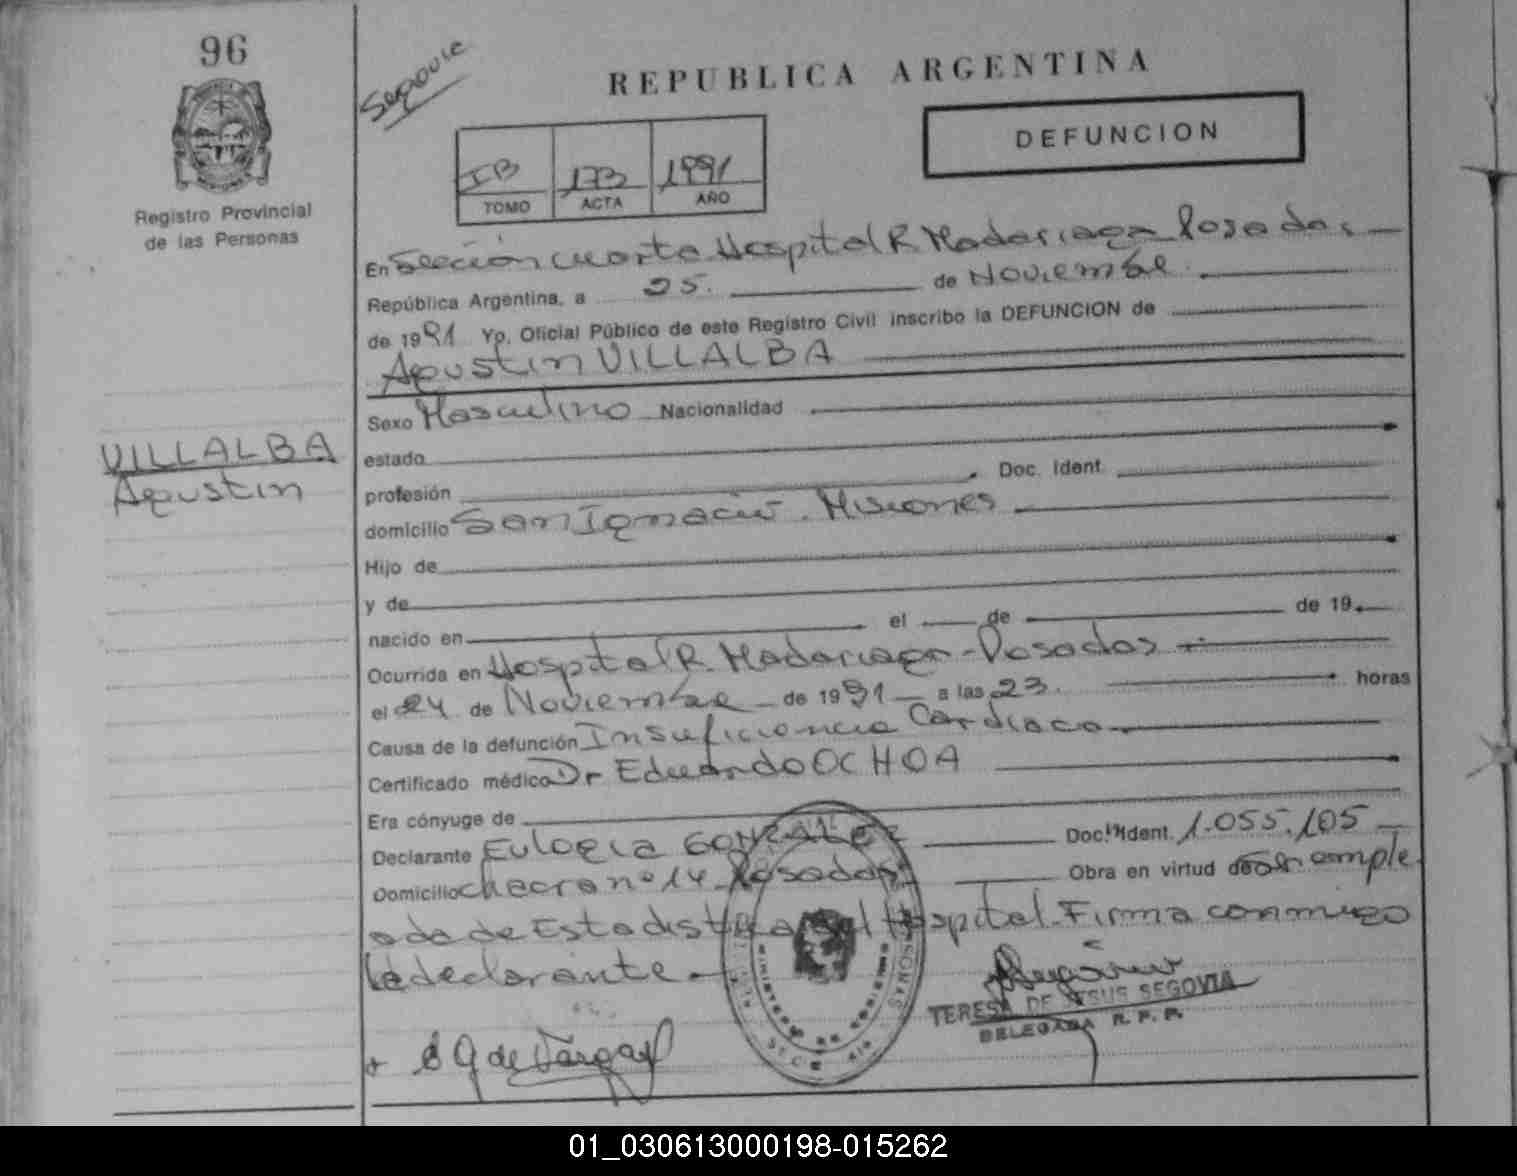 96
Registro Provincial
de las Personas
VILLALBA
Agustin
REPUBLICA ARGENTINA
DEFUNCION
IB 173 1991
TOMO ACTA AÑO
En Sección cuarta Hospital R. Madariaga Posadas
República Argentina, a 25. de Noviembre
de 1991 Yo, Oficial Público de este Registro Civil inscribo la DEFUNCION de
Agustin VILLALBA
Sexo Masculino Nacionalidad
estado
profesión Doc. Ident.
domicilio San Ignacio. Misiones
Hijo de
y de
nacido en el de de 19
Ocurrida en Hospital R. Madariaga - Posadas
el 24 de Noviembre de 1991 a las 23. horas
Causa de la defunción Insuficiencia Cardiaca
Certificado médico Dr Eduardo OCHOA
Era cónyuge de
Declarante Eulogia GONZALEZ Doc. Ident. 1.055.105
Domicilio chacra nº 14 Posadas Obra en virtud de ser emple
ada de Estadistica del Hospital. Firma conmigo
la declarante.
E G de Vargas
TERESA DE JESUS SEGOVIA
DELEGADA R. P. P.
01_030613000198-015262